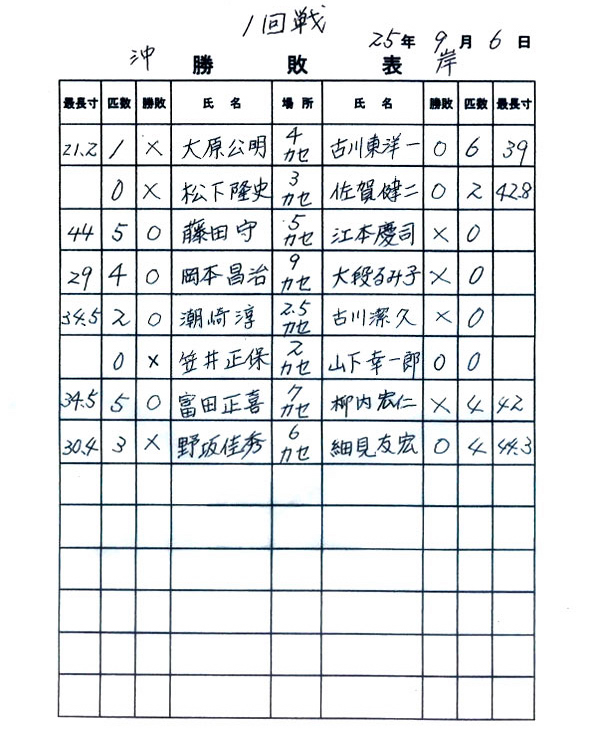 1回戦
25年 9月 6日
沖 勝敗表 岸
最長寸 匹数 勝敗 氏名 場所 氏名 勝敗 匹数 最長寸
21.2 1 × 大原公明 4カセ 古川東洋一 0 6 39
0 × 松下隆史 3カセ 佐賀健二 0 2 42.8
44 5 0 藤田守 5カセ 江本慶司 × 0
29 4 0 岡本昌治 9カセ 大段るみ子 × 0
34.5 2 0 潮崎淳 2.5カセ 古川潔久 × 0
0 × 笠井正保 2カセ 山下幸一郎 0 0
34.5 5 0 富田正喜 7カセ 柳内宏仁 × 4 42
30.4 3 × 野坂佳秀 6カセ 細見友宏 0 4 44.3